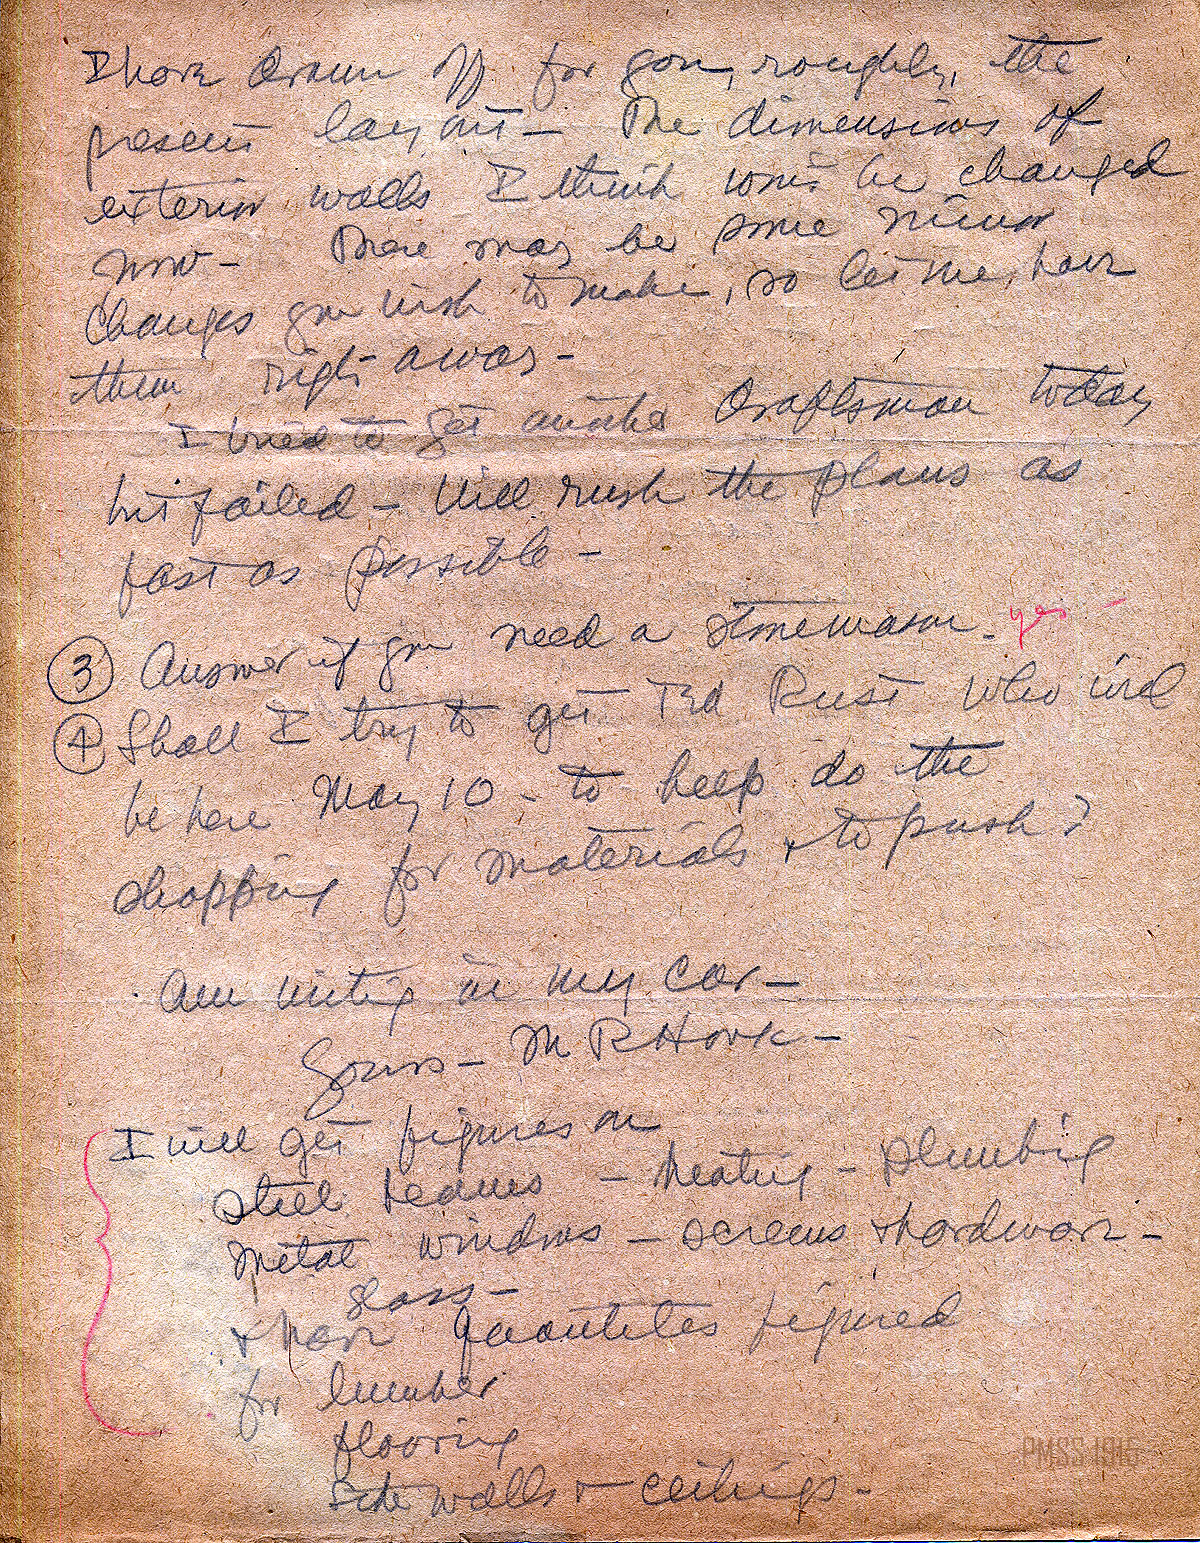 I have drawn off for you, roughly, the
present layout — The dimensions of
exterior walls I think won't be changed
now — There may be some minor
changes you wish to make, so let me have
them right away —
I tried to get another draftsman today
but failed — Will rush the plans as
fast as possible —
③ Answer if you need a stonemason. yes —
④ Shall I try to get Ted Rust who will
be here May 10 — to help do the
shopping for materials & to push?
Am writing in my car —
Yours — M R Hook —
I will get figures on
steel beams — heating — plumbing
metal windows — screens & hardware —
glass —
& have quantities figured
for lumber
flooring
side walls & ceilings —
PMSS 1915